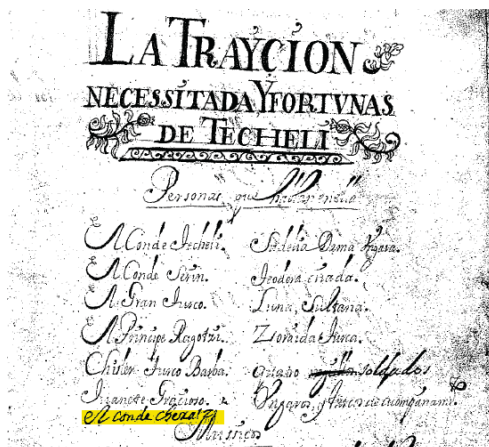 LA TRAYCION
NECESSITADA Y FORTVNAS
DE TECHELI
Personas que hablan en ella
El Conde Techeli.
El Conde Serin.
El Gran Turco.
El Principe Ragotzi.
Chisler Turco Barba.
Juanete Gracioso.
El conde
Dama Ungara.
Teodora criada.
Luna, Sultana.
Zoraida Turca.
quatro soldados
Ungaros, y Turcos de acompañami.to
Mussica